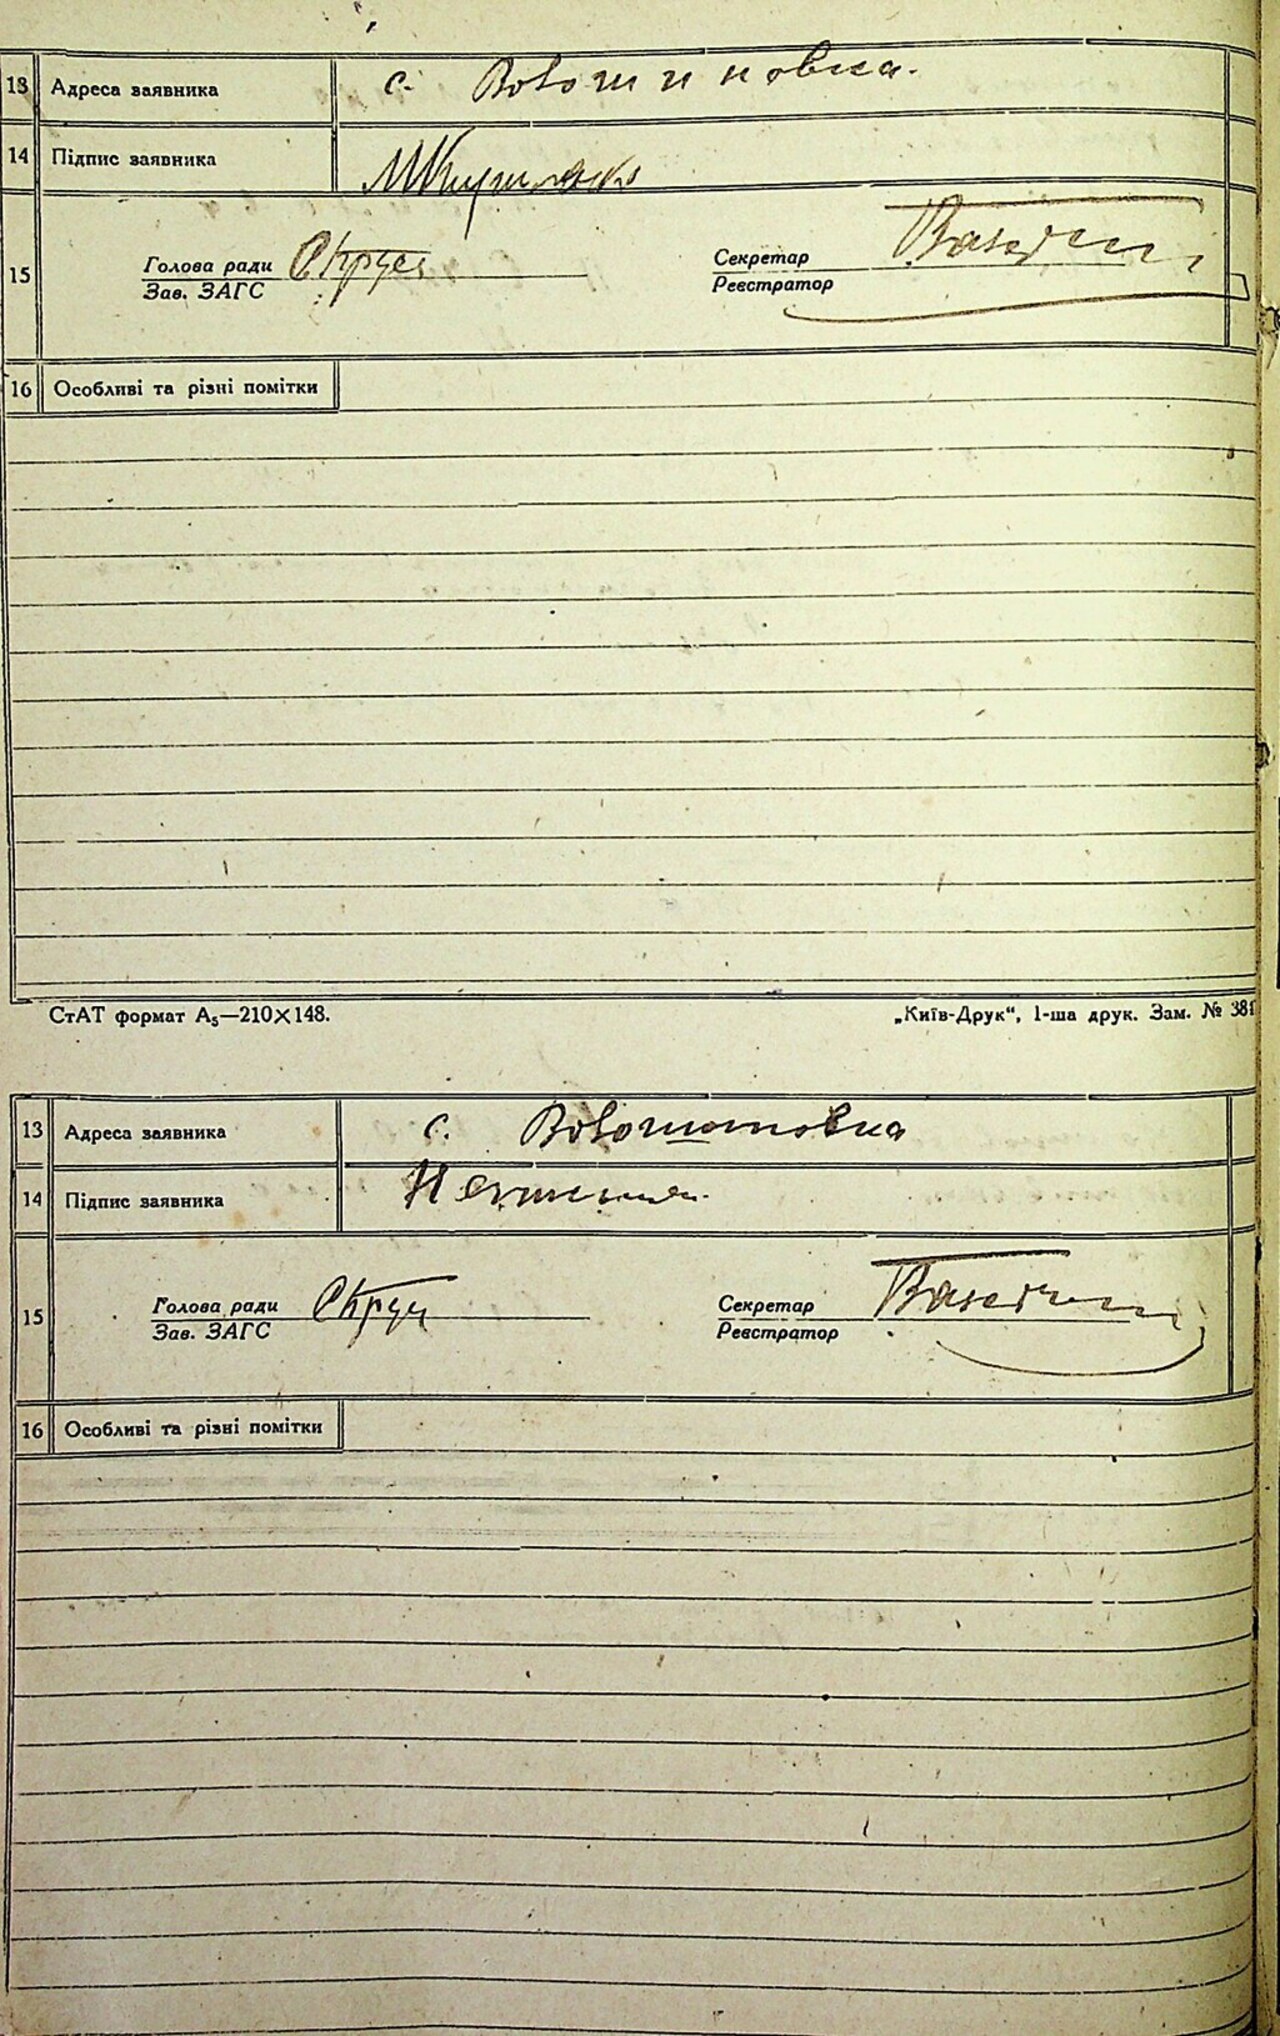 13 Адреса заявника с. Волошиновка.
14 Підпис заявника
15 Голова ради Секретар
Зав. ЗАГС Реєстратор
16 Особливі та різні помітки
СтАТ формат А₅—210×148. „Київ-Друк“, 1-ша друк. Зам. № 381
13 Адреса заявника с. Волошиновка
14 Підпис заявника
15 Голова ради Секретар
Зав. ЗАГС Реєстратор
16 Особливі та різні помітки